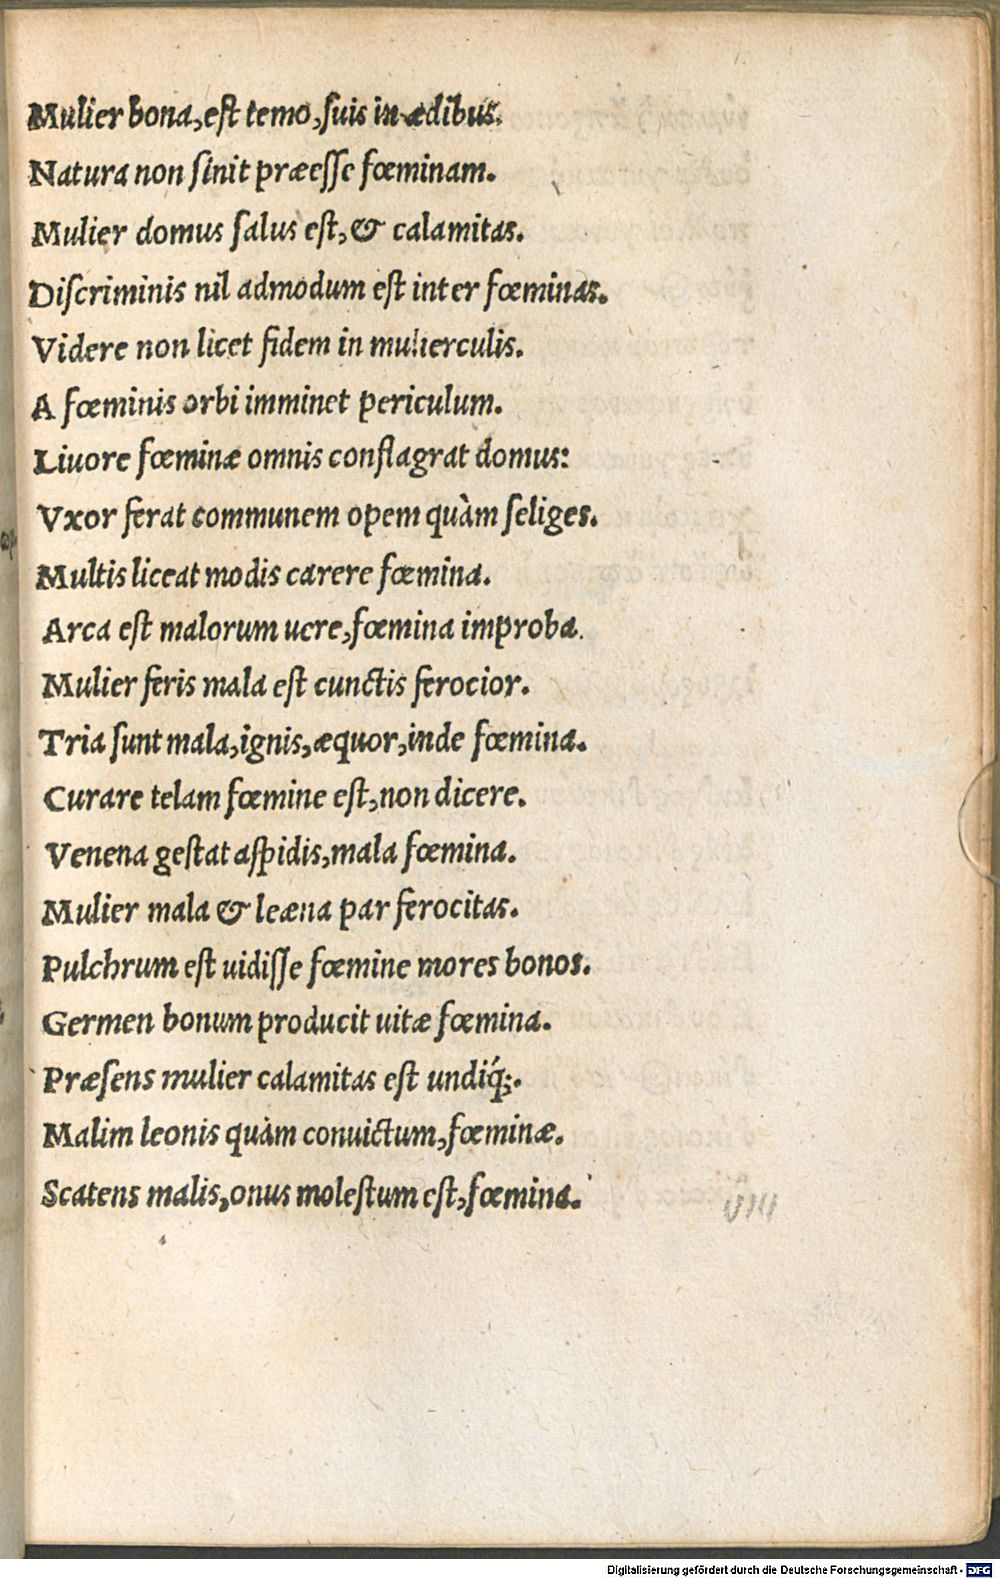 Mulier bona, est temo, suis in ædibus.
Natura non sinit præesse fœminam.
Mulier domus salus est, & calamitas.
Discriminis nil admodum est inter fœminas.
Videre non licet fidem in mulierculis.
A fœminis orbi imminet periculum.
Liuore fœminæ omnis conflagrat domus:
Vxor ferat communem opem quàm seliges.
Multis liceat modis carere fœmina.
Arca est malorum uere, fœmina improba.
Mulier feris mala est cunctis ferocior.
Tria sunt mala, ignis, æquor, inde fœmina.
Curare telam fœmine est, non dicere.
Venena gestat aspidis, mala fœmina.
Mulier mala & leæna par ferocitas.
Pulchrum est uidisse fœmine mores bonos.
Germen bonum producit uitæ fœmina.
Præsens mulier calamitas est undiq́;.
Malim leonis quàm conuictum, fœminæ.
Scatens malis, onus molestum est, fœmina.
Digitalisierung gefördert durch die Deutsche Forschungsgemeinschaft - DFG